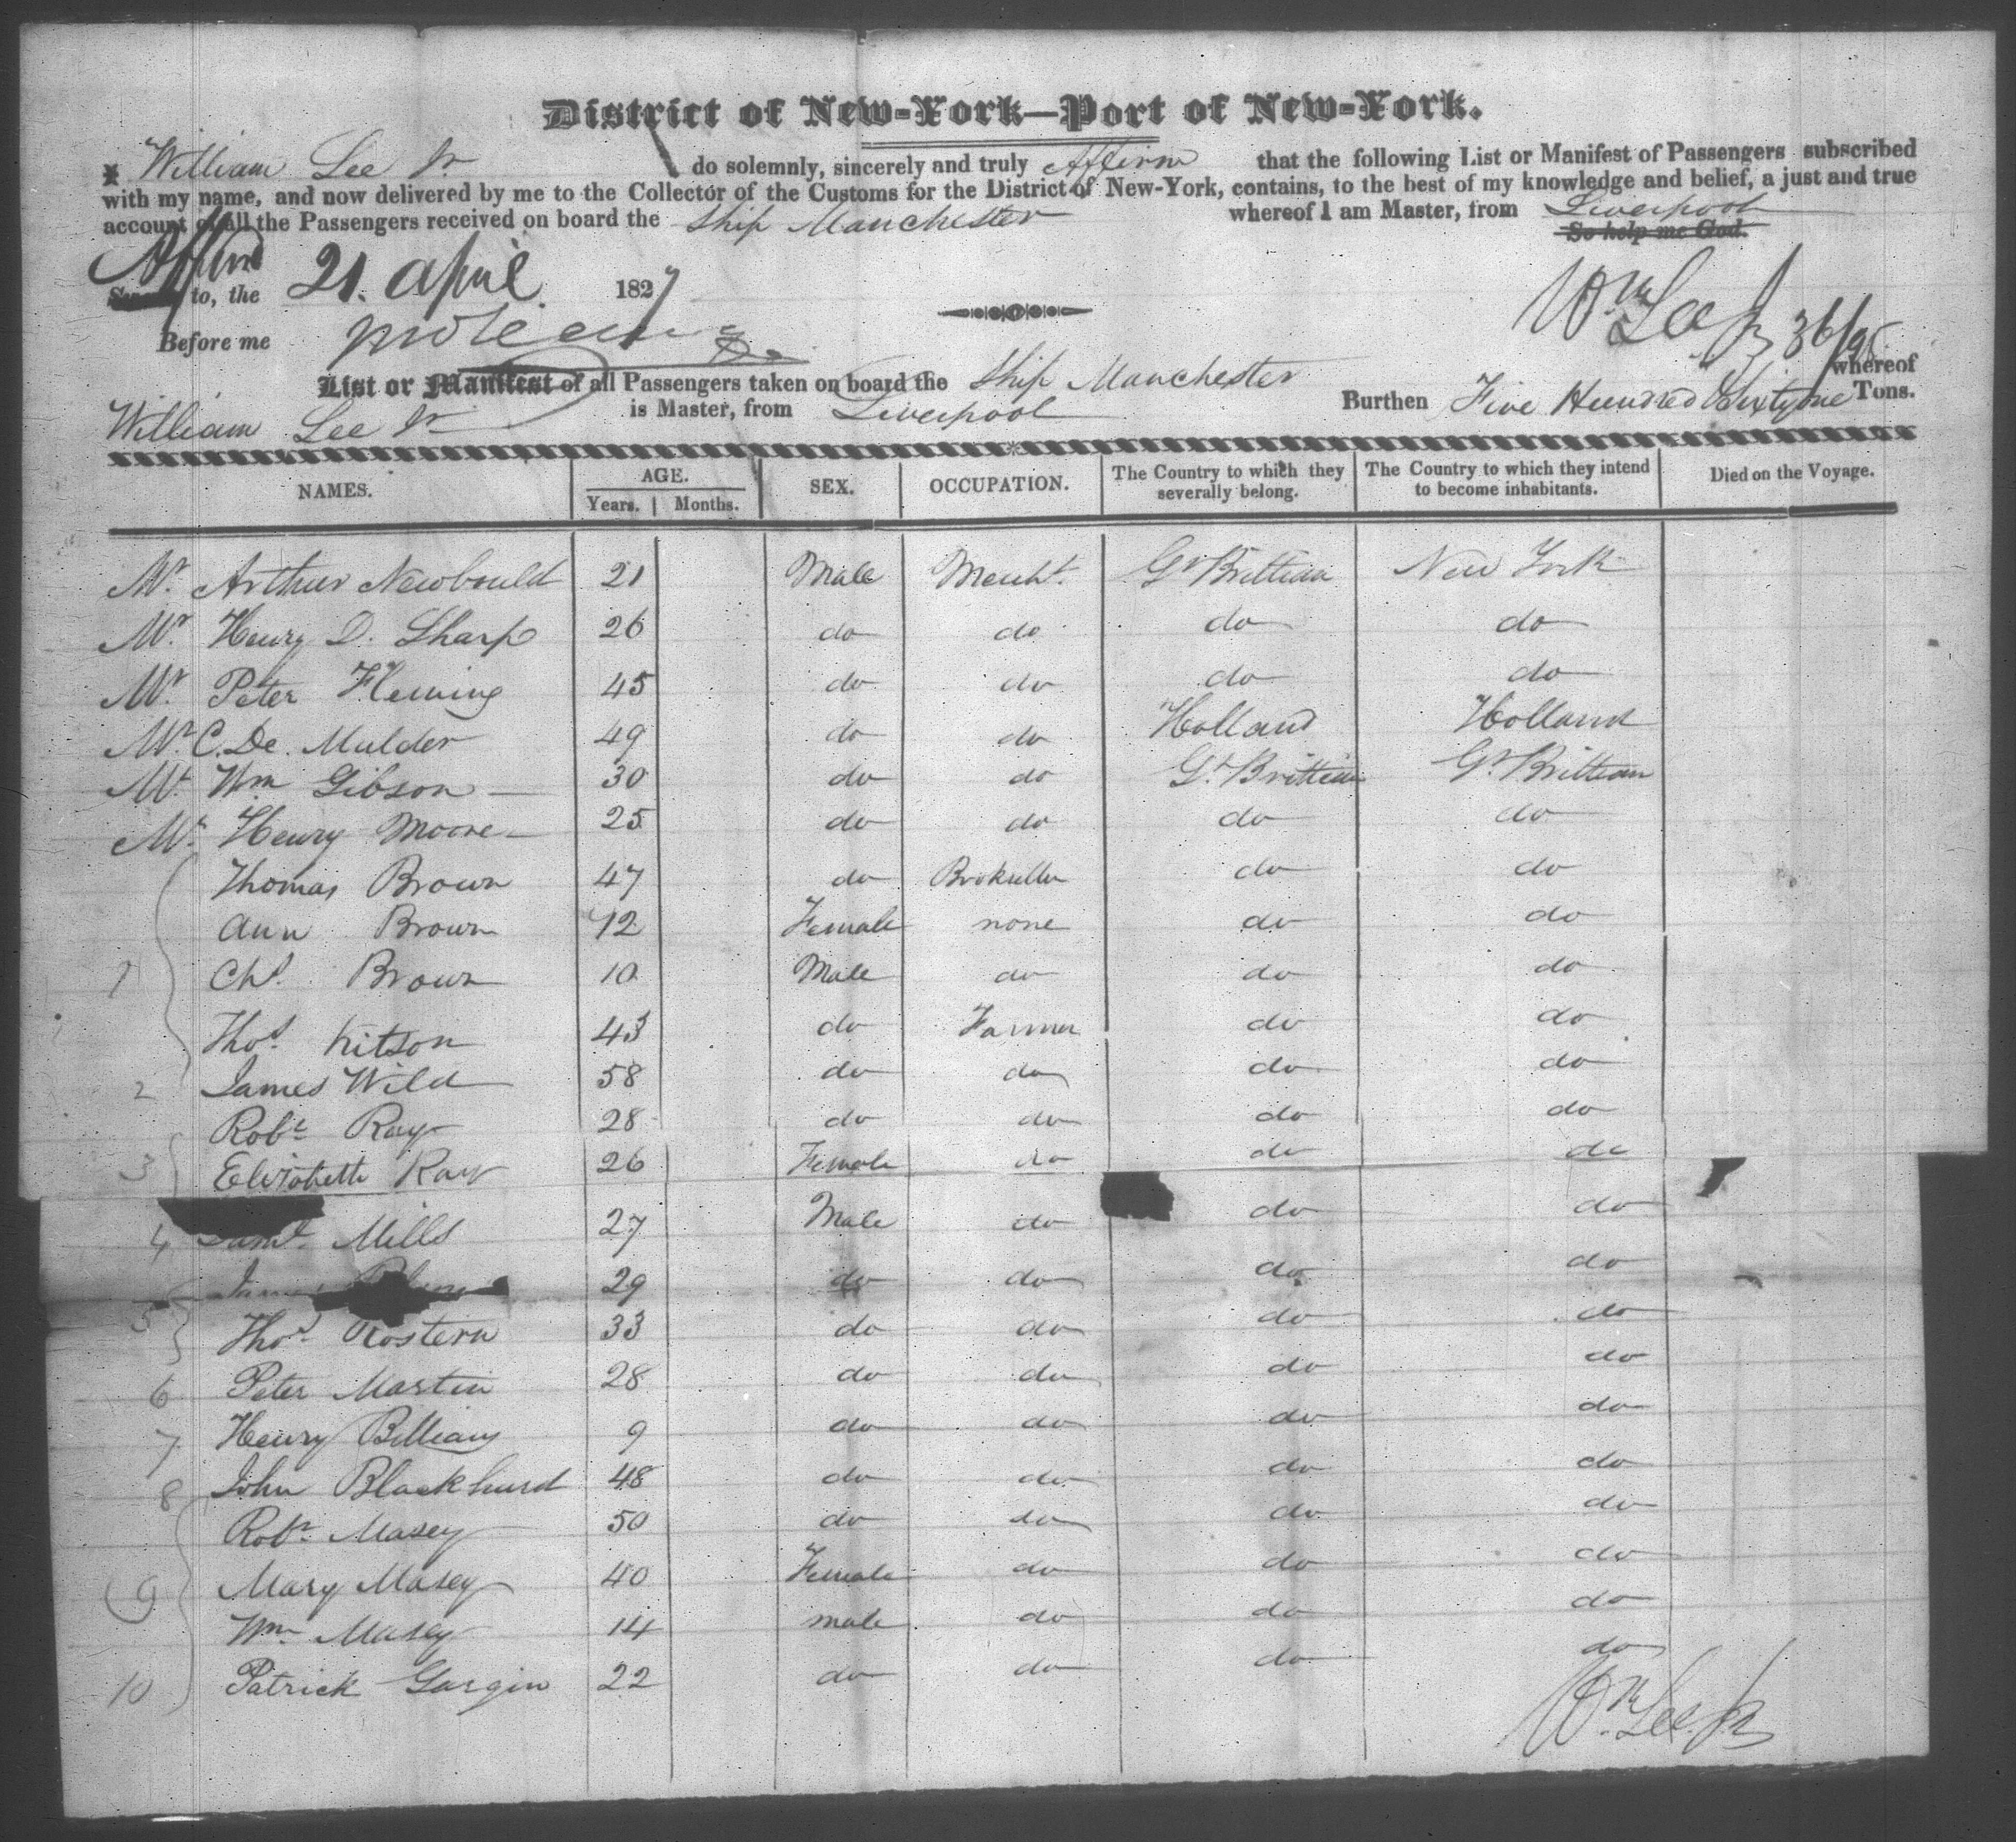 District of New-York—Port of New-York.
I William Lee Jr do solemnly, sincerely and truly Affirm that the following List or Manifest of Passengers subscribed
with my name, and now delivered by me to the Collector of the Customs for the District of New-York, contains, to the best of my knowledge and belief, a just and true
account of all the Passengers received on board the Ship Manchester whereof I am Master, from Liverpool
So help me God.
Affirmd
Sworn to, the 21. April 1827
Wm Lee Jr 36/95
Before me
List or Manifest of all Passengers taken on board the Ship Manchester whereof
William Lee Jr is Master, from Liverpool Burthen Five Hundred Sixty one Tons.
NAMES. AGE. Years. Months. SEX. OCCUPATION. The Country to which they severally belong. The Country to which they intend to become inhabitants. Died on the Voyage.
Mr. Arthur Newbould 21 Male Mercht. Gt Brittian New York
Mr. Henry D. Sharp 26 do do do do
Mr. Peter Fleming 45 do do do do
Mr. C. De. Mulder 49 do do Holland Holland
Mr. Wm Gibson 30 do do Gt. Brittian Gt. Brittian
Mr. Henry Moore 25 do do do do
Thomas Brown 47 do Bookseller do do
Ann Brown 12 Female none do do
1 Chs. Brown 10 Male do do do
Thos. Kitson 43 do Farmer do do
2 James Wild 58 do do do do
Robt Ray 28 do do do do
3 Elizabeth Ray 26 Female do do do
4 Saml. Mills 27 Male do do do
29 do do do do
5 Thos. Rostern 33 do do do do
6 Peter Martin 28 do do do do
7 Henry Billiany 9 do do do do
8 John Blackhurd 48 do do do do
Robt Masey 50 do do do do
9 Mary Masey 40 Female do do do
Wm Masey 14 male do do do
10 Patrick Gargin 22 do do do do
Wm Lee Jr